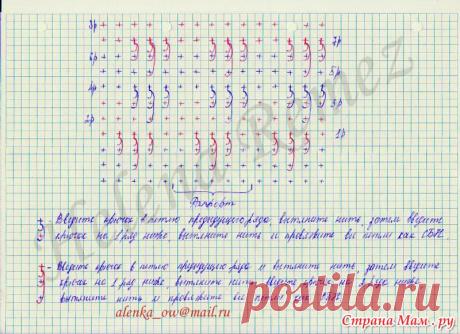 8р
7р
6р
5р
4р
3р
2р
1р
Раппорт
Введите крючок в петлю предыдущего ряда вытяните нить, затем введите
крючок на 1 ряд ниже, вытяните нить и провяжите все петли как СБН.
- Введите крючок в петлю предыдущего ряда и вытяните нить, затем введите
крючок на 1 ряд ниже, вытяните нить, введите крючок на 2 ряда ниже
вытяните нить и провяжите все петли как СБН.
alenka_ow@mail.ru
Alena Remez
Страна Мам.ру